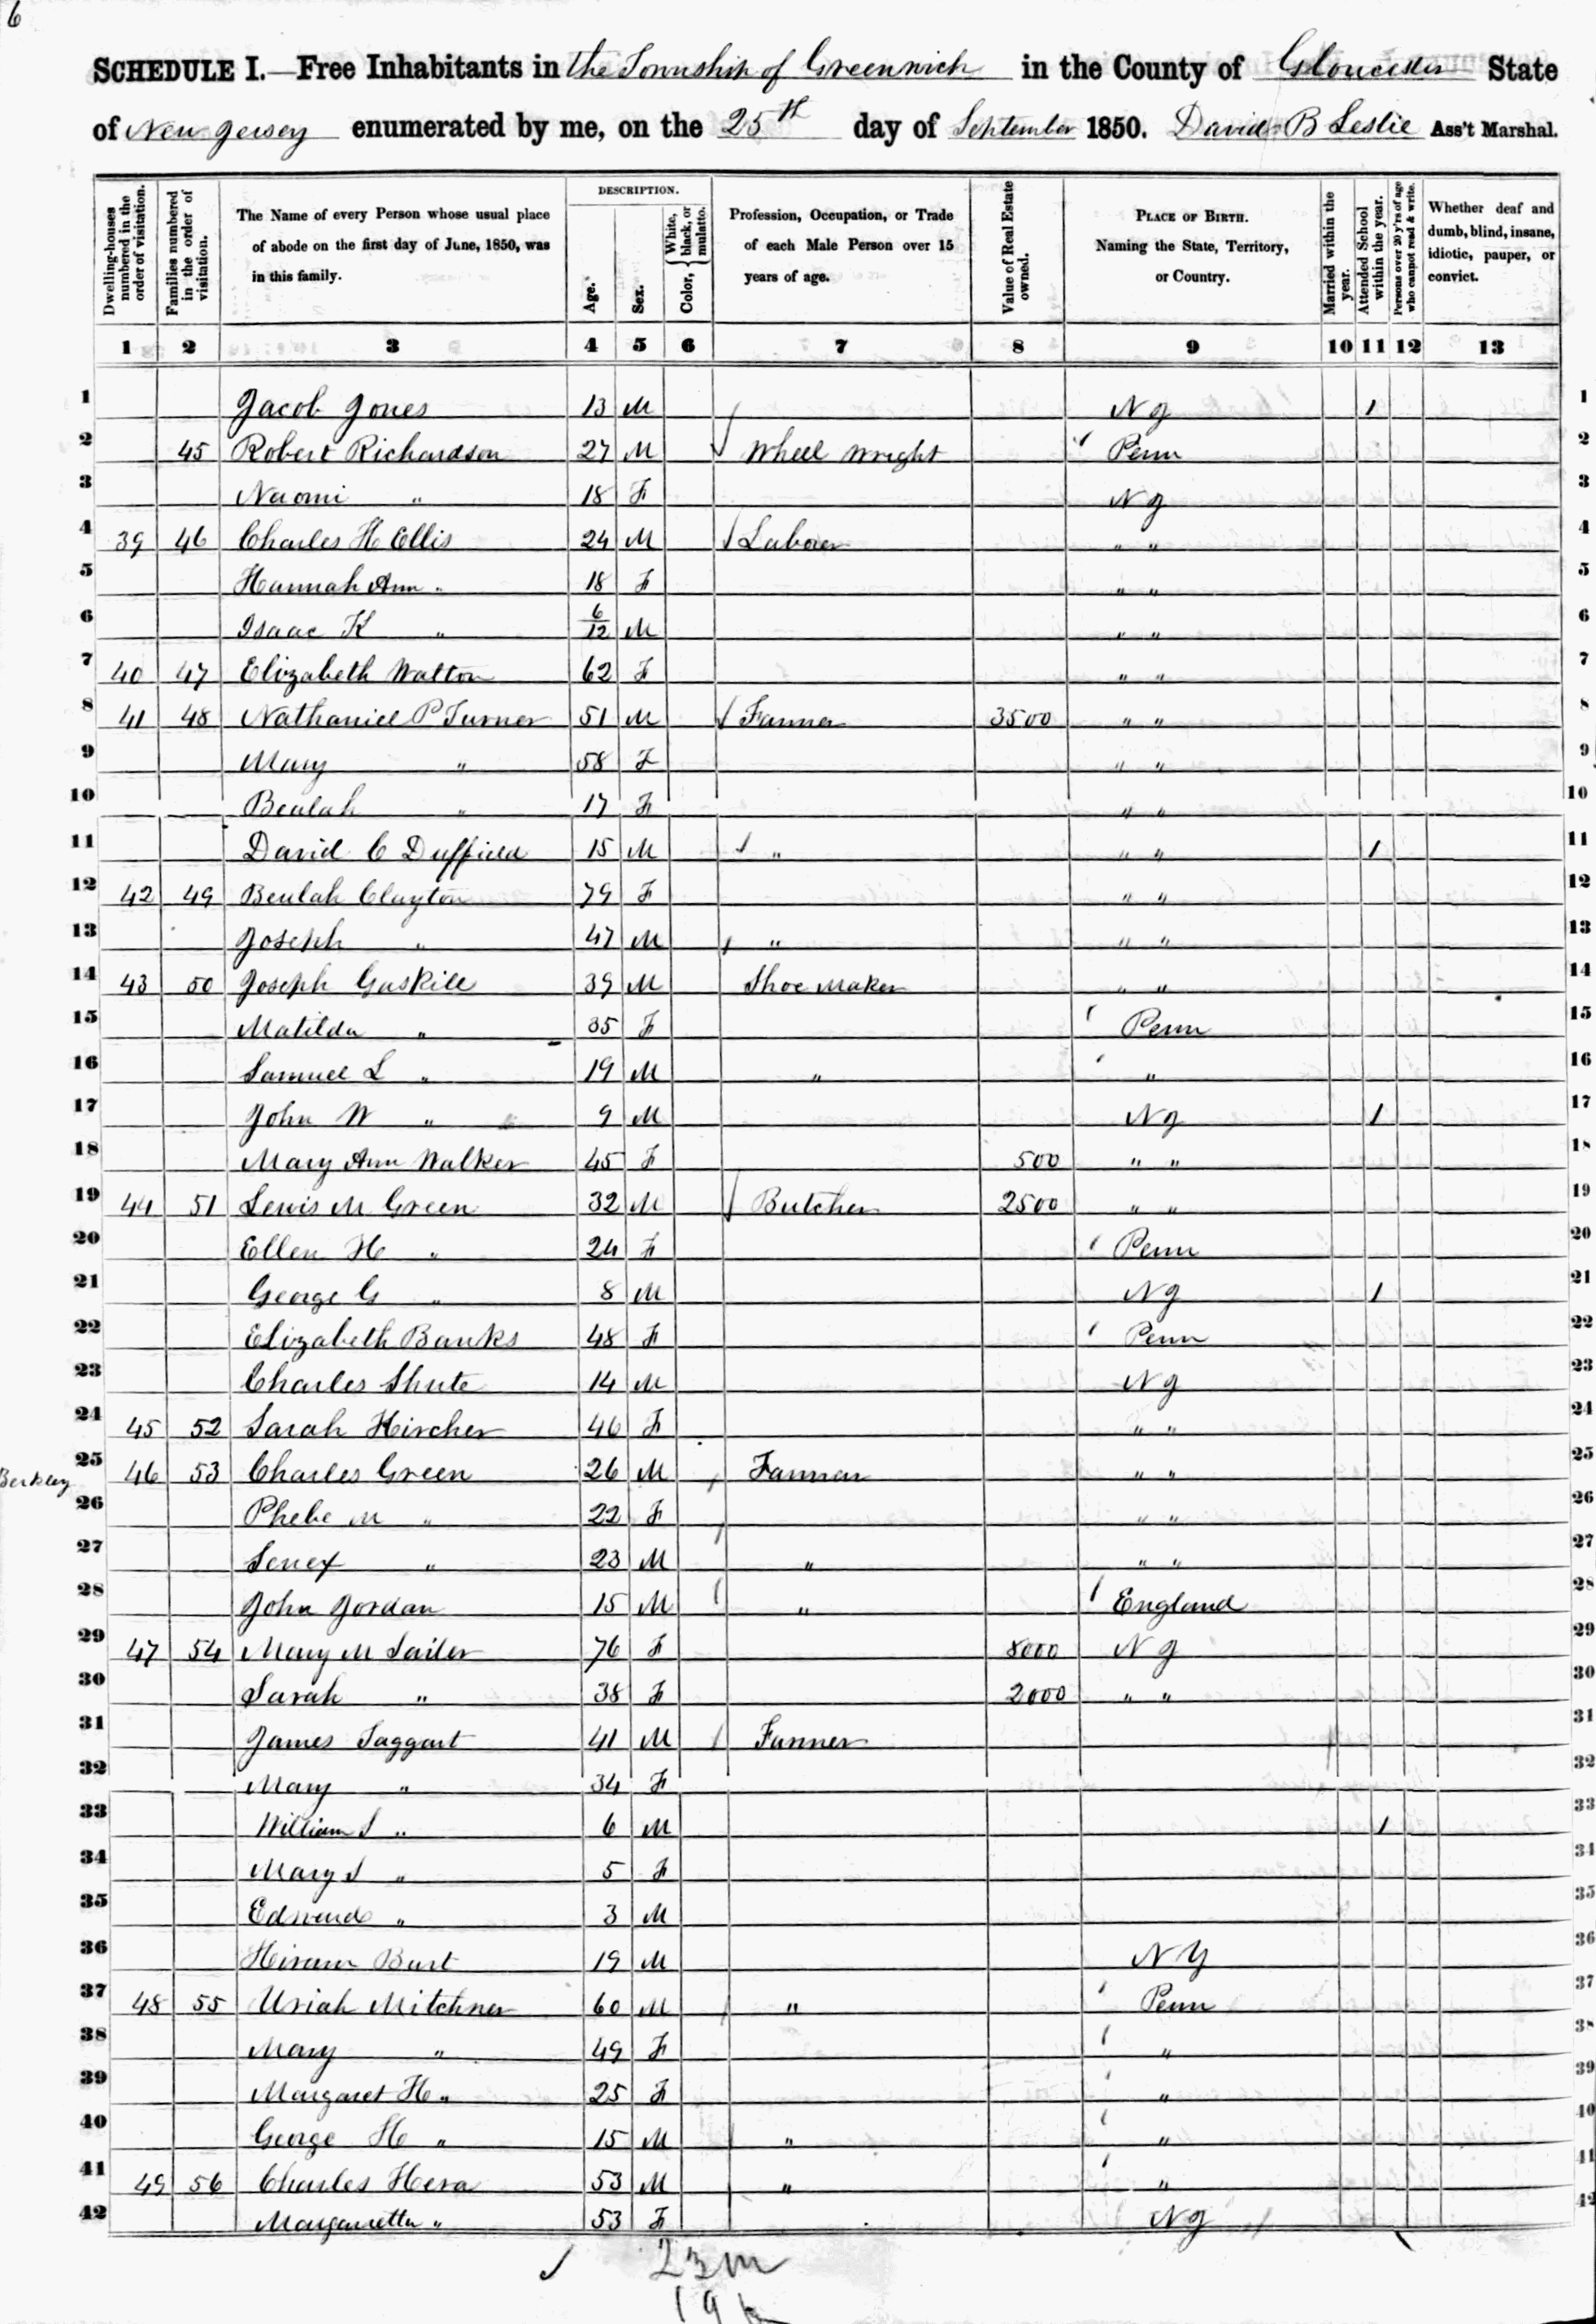 6
SCHEDULE I.—Free Inhabitants in the Township of Greenwich in the County of Gloucester State
of New Jersey enumerated by me, on the 25th day of September 1850. David B Leslie Ass't Marshal.
Dwelling-houses numbered in the order of visitation.
Families numbered in the order of visitation.
The Name of every Person whose usual place of abode on the first day of June, 1850, was in this family.
DESCRIPTION.
Age.
Sex.
Color, { White, black, or mulatto.
Profession, Occupation, or Trade of each Male Person over 15 years of age.
Value of Real Estate owned.
PLACE OF BIRTH. Naming the State, Territory, or Country.
Married within the year.
Attended School within the year.
Persons over 20 y'rs of age who cannot read & write.
Whether deaf and dumb, blind, insane, idiotic, pauper, or convict.
1 2 3 4 5 6 7 8 9 10 11 12 13
1 Jacob Jones 13 M N J 1 1
2 45 Robert Richardson 27 M Wheel Wright Penn 2
3 Naomi " 18 F N J 3
4 39 46 Charles H Ellis 24 M Laborer " " 4
5 Hannah Ann " 18 F " " 5
6 Isaac K " 6/12 M " " 6
7 40 47 Elizabeth Watton 62 F " " 7
8 41 48 Nathaniel P Turner 51 M Farmer 3500 " " 8
9 Mary " 58 F " " 9
10 Beulah " 17 F " " 10
11 David C Duffield 15 M " " " 1 11
12 42 49 Beulah Clayton 79 F " " 12
13 Joseph " 47 M " " " 13
14 43 50 Joseph Gaskill 39 M Shoe Maker " " 14
15 Matilda " 35 F Penn 15
16 Samuel L " 19 M " " 16
17 John W " 9 M N J 1 17
18 Mary Ann Walker 45 F 500 " " 18
19 44 51 Lewis M Green 32 M Butcher 2500 " " 19
20 Ellen H " 24 F Penn 20
21 George G " 8 M N J 1 21
22 Elizabeth Banks 48 F Penn 22
23 Charles Shute 14 M N J 23
24 45 52 Sarah Hircher 46 F " " 24
Berkley 25 46 53 Charles Green 26 M Farmer " " 25
26 Phebe M " 22 F " " 26
27 " 23 M " " " 27
28 John Jordan 15 M " England 28
29 47 54 Mary M Sailer 76 F 8000 N J 29
30 Sarah " 38 F 2000 " " 30
31 James Taggart 41 M Farmer 31
32 Mary " 34 F 32
33 William S " 6 M 1 33
34 Mary S " 5 F 34
35 Edward " 3 M 35
36 Hiram Burt 19 M N Y 36
37 48 55 Uriah Mitchner 60 M " Penn 37
38 Mary " 49 F " 38
39 Margaret H " 25 F " 39
40 George H " 15 M " " 40
41 49 56 Charles Hera 53 M " " 41
42 Margaretta " 53 F N J 42
23 m